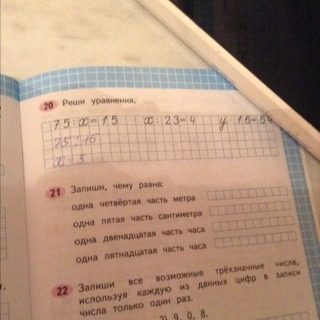 20 Реши уравнения.
75 : x = 15 x : 23 = 4 y · 16 = 64
75 : 15
x = 5
21 Запиши, чему равна:
одна четвёртая часть метра
одна пятая часть сантиметра
одна двенадцатая часть часа
одна пятнадцатая часть часа
22 Запиши все возможные трёхзначные числа,
используя каждую из данных цифр в записи
числа только один раз.
9, 0, 8.